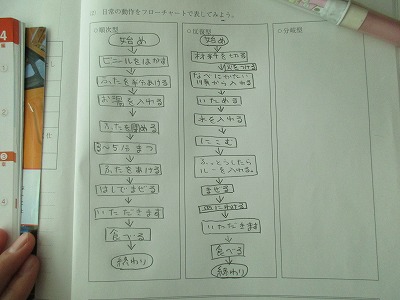 (2) 日常の動作をフローチャートで表してみよう。
○順次型
始め
ビニールをはがす
ふたを半分あける
お湯を入れる
ふたを閉める
3~5分まつ
ふたをあける
はしでまぜる
いただきます
食べる
終わり
○反復型
始め
材料を切る
火をつける
なべにかたい
順から入れる
いためる
水を入れる
にこむ
ふっとうしたら
ルーを入れる。
まぜる
皿に分ける
いただきます
食べる
終わり
○分岐型